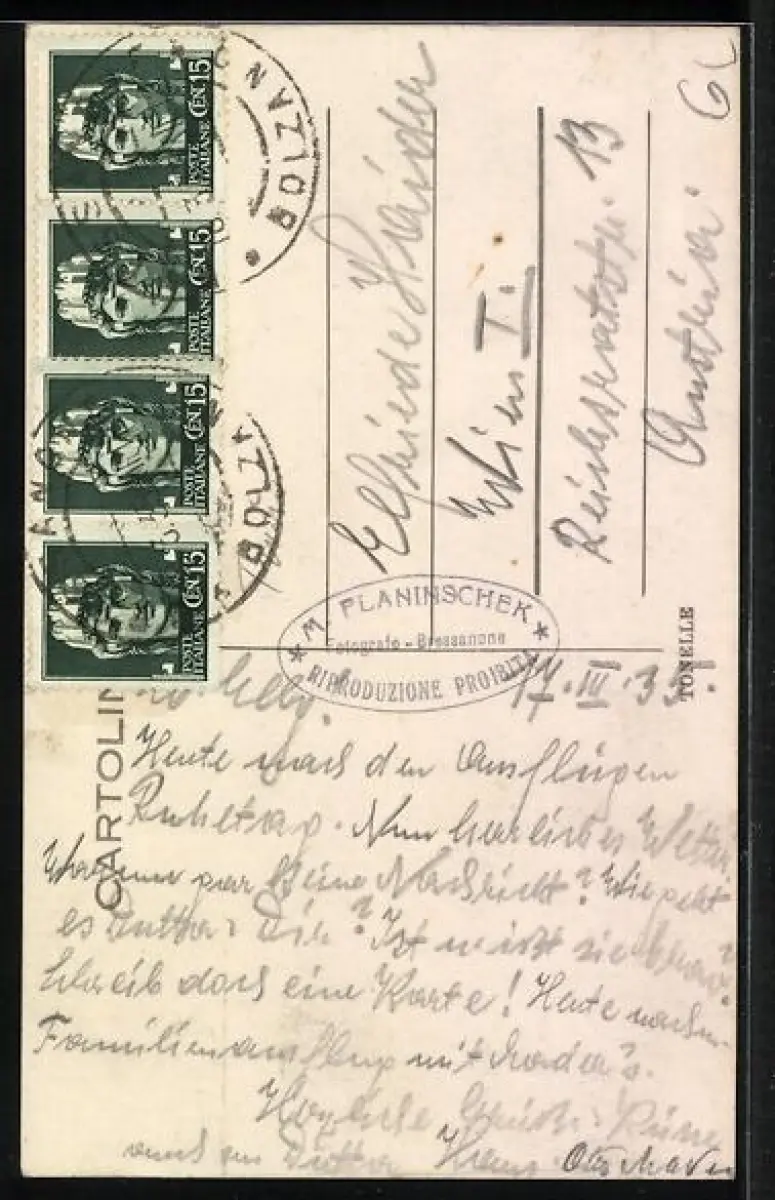 POSTE ITALIANE CENT 15
POSTE ITALIANE CENT 15
POSTE ITALIANE CENT 15
POSTE ITALIANE CENT 15
BOLZAN
BOLZANO
Elfriede Haider
Wien I.
Reichsratsstr. 13
Austria
M. PLANINSCHEK
Fotografo - Bressanone
RIPRODUZIONE PROIBITA
TONELLE
CARTOLIN
17. III. 35.
Heute nach den Ausflügen
Ruhetag. Nun herrliches Wetter.
Warum gar keine Nachricht? Wie geht
es Dir? Ist sie brav?
Schreib doch eine Karte! Heute nachm.
Familienausflug mit
Herzliche Grüße
auch an